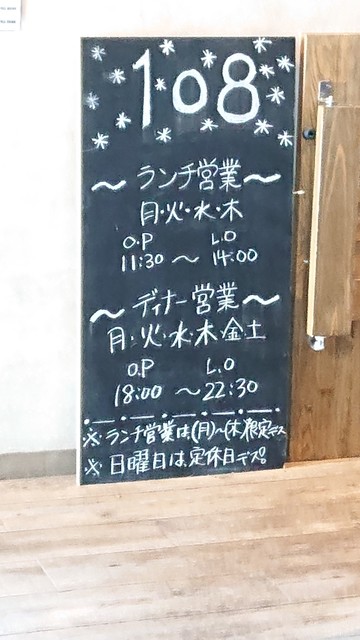 108
〜ランチ営業〜
月・火・水・木
O.P L.O
11:30 〜 14:00
〜ディナー営業〜
月・火・水・木金土
O.P L.O
18:00 〜22:30
※ランチ営業は(月)〜(木)限定デス
※日曜日は、定休日デス。